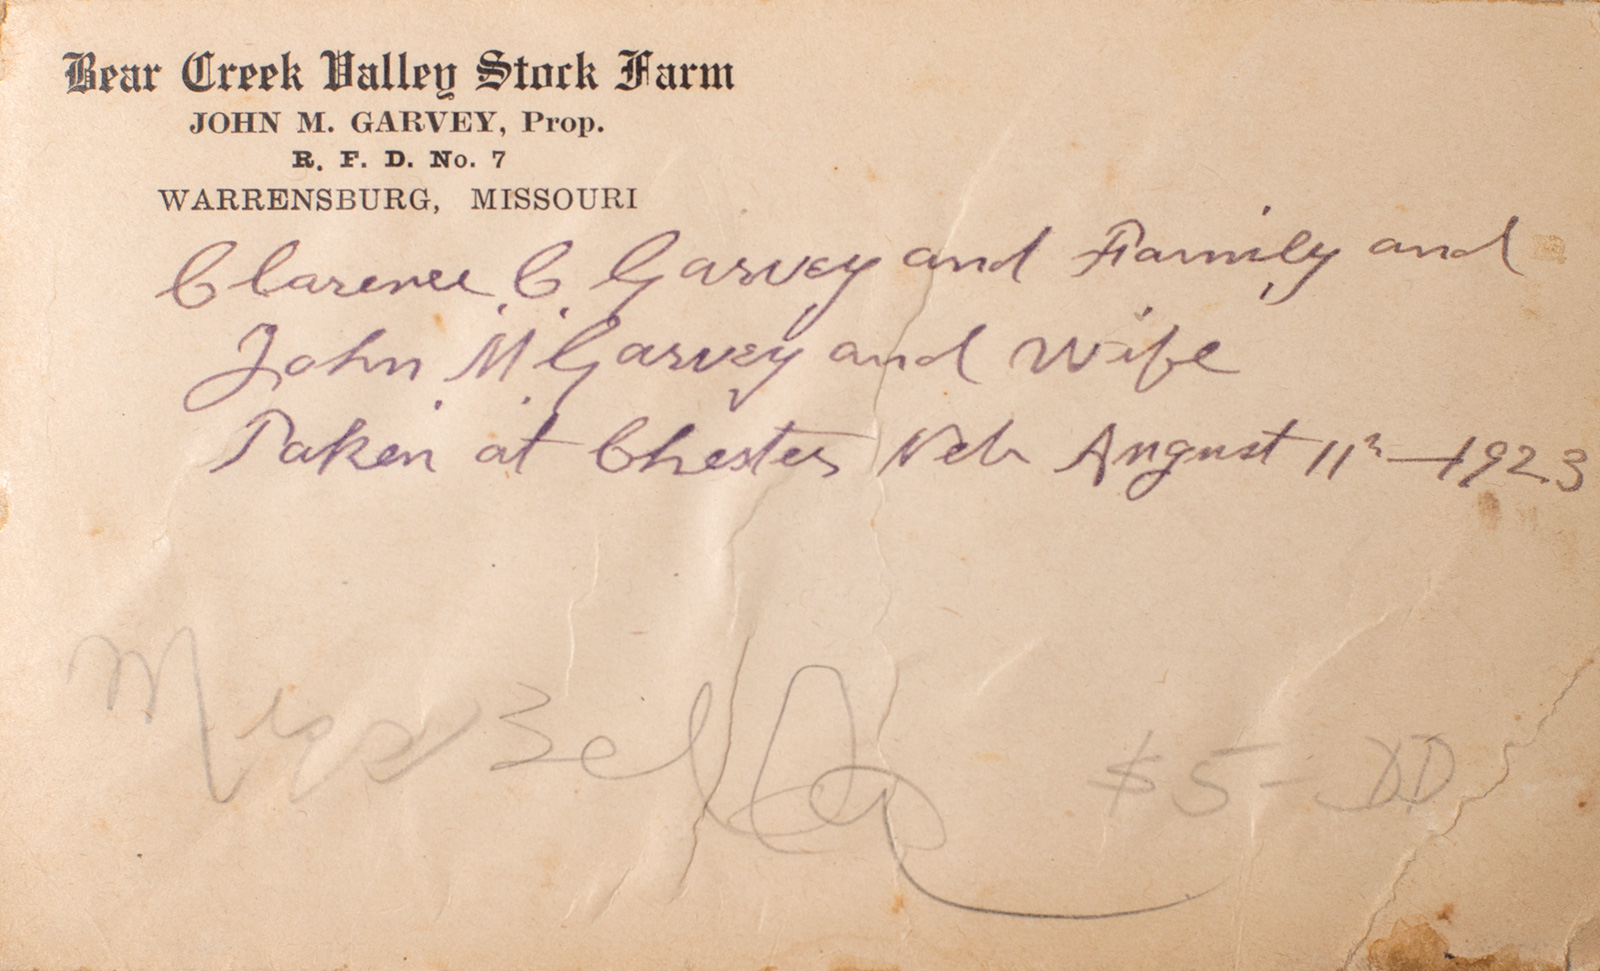 Bear Creek Valley Stock Farm
JOHN M. GARVEY, Prop.
R. F. D. No. 7
WARRENSBURG, MISSOURI
Clarence C. Garvey and Family and
John M. Garvey and Wife
Taken at Chester Neb August 11th - 1923
Miss Bell
$5- DD